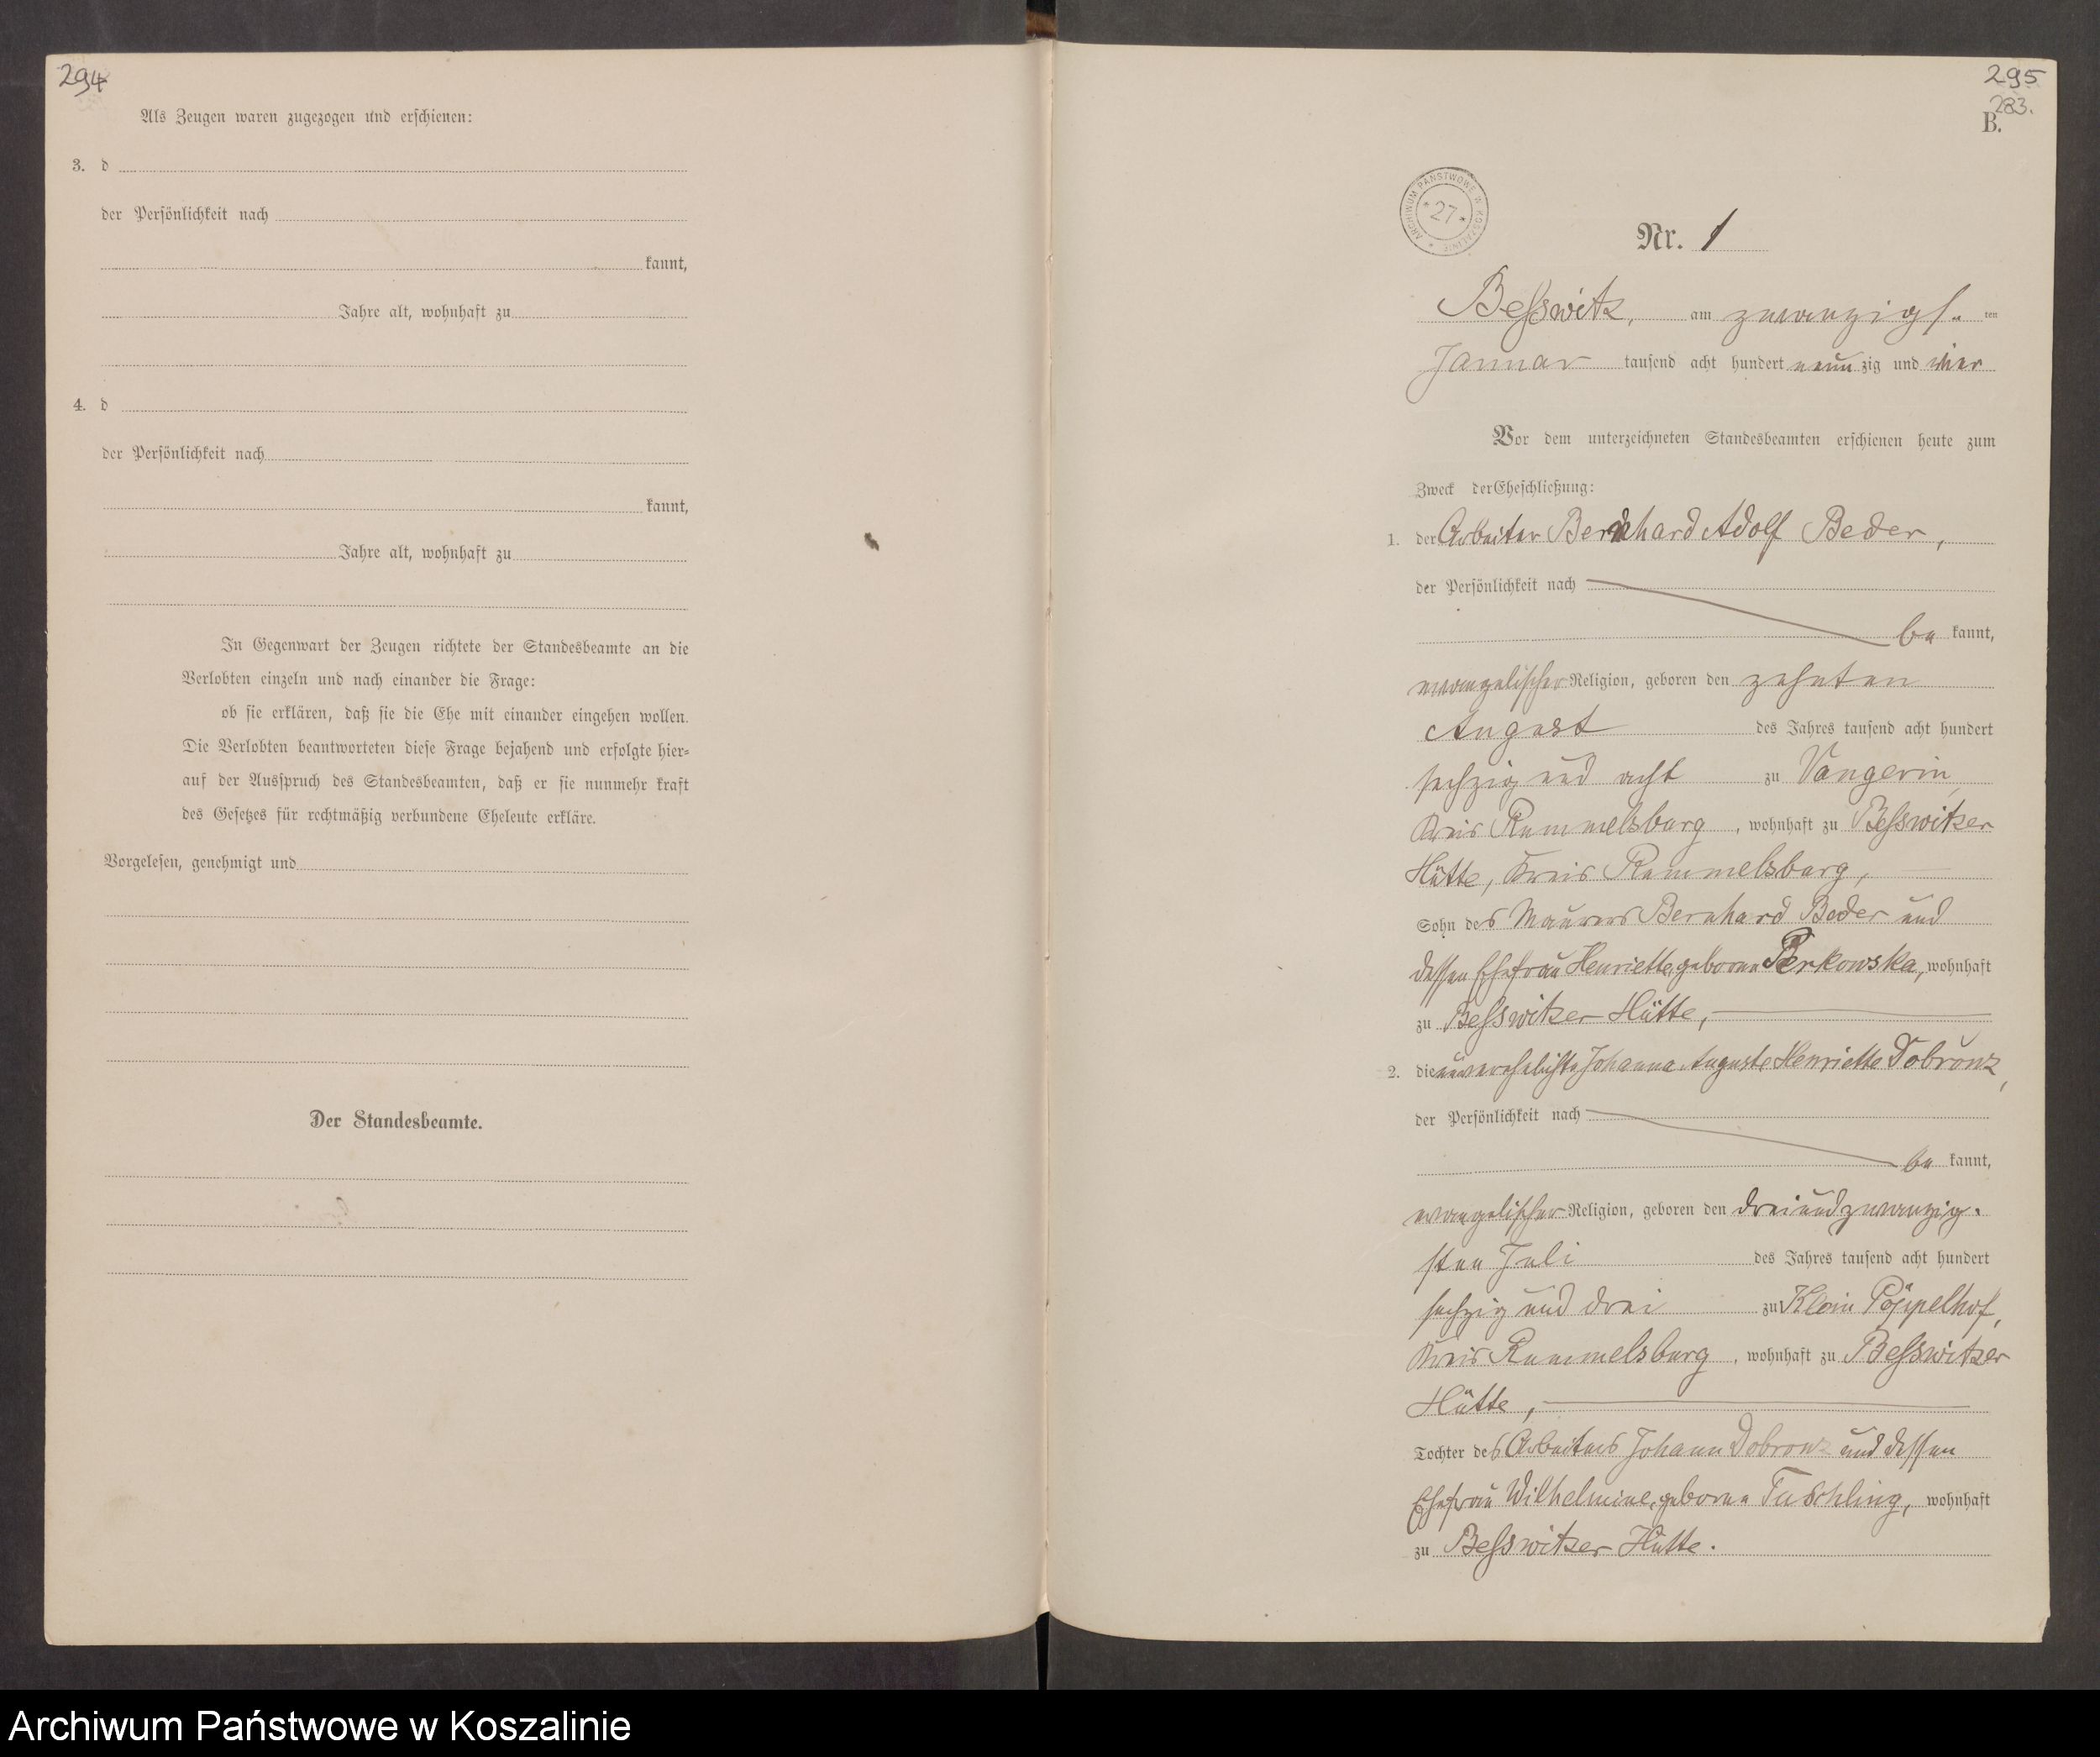 294
Als Zeugen waren zugezogen und erschienen:
3. d
der Persönlichkeit nach
kannt,
Jahre alt, wohnhaft zu
4. d
der Persönlichkeit nach
kannt,
Jahre alt, wohnhaft zu
In Gegenwart der Zeugen richtete der Standesbeamte an die
Verlobten einzeln und nach einander die Frage:
ob sie erklären, daß sie die Ehe mit einander eingehen wollen.
Die Verlobten beantworteten diese Frage bejahend und erfolgte hier-
auf der Ausspruch des Standesbeamten, daß er sie nunmehr kraft
des Gesetzes für rechtmäßig verbundene Eheleute erkläre.
Vorgelesen, genehmigt und
Der Standesbeamte.
295
283.
B.
ARCHIWUM PAŃSTWOWE W KOSZALINIE
* 27 *
Nr. 1
Besswitz, am zwanzigs. ten
Januar tausend acht hundert neun zig und vier
Vor dem unterzeichneten Standesbeamten erschienen heute zum
Zweck der Eheschließung:
1. der Arbeiter Bernhard Adolf Beder,
der Persönlichkeit nach
be kannt,
evangelischer Religion, geboren den zehnten
August des Jahres tausend acht hundert
sechzig und acht zu Vangerin,
Kreis Rummelsburg, wohnhaft zu Besswitzer
Hütte, Kreis Rummelsburg,
Sohn des Maurers Bernhard Beder und
dessen Ehefrau Henriette geborne Perkowska, wohnhaft
zu Besswitzer Hütte,
2. die unverehelichte Johanna Auguste Henriette Dobronz,
der Persönlichkeit nach
be kannt,
evangelischer Religion, geboren den dreiundzwanzig-
sten Juli des Jahres tausend acht hundert
sechzig und drei zu Klein Pöppelhof,
Kreis Rummelsburg, wohnhaft zu Besswitzer
Hütte,
Tochter des Arbeiters Johann Dobronz und dessen
Ehefrau Wilhelmine, geborne Tuschling, wohnhaft
zu Besswitzer Hütte.
Archiwum Państwowe w Koszalinie